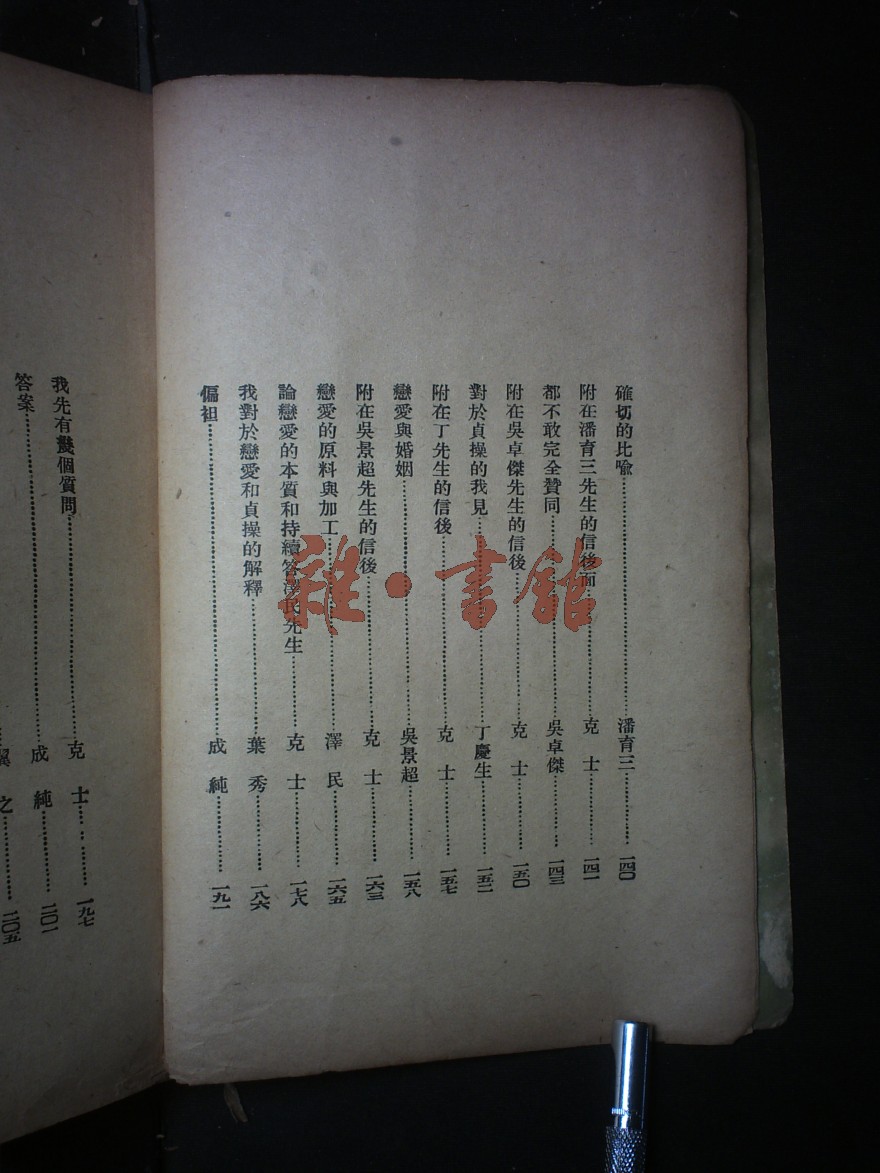 確切的比喻……潘育三……一四〇
附在潘育三先生的信後面……克士……一四一
都不敢完全贊同……吳卓傑……一四三
附在吳卓傑先生的信後……克士……一五〇
對於貞操的我見……丁慶生……一五二
附在丁先生的信後……克士……一五七
戀愛與婚姻……吳景超……一五八
附在吳景超先生的信後……克士……一六三
戀愛的原料與加工……澤民……一六五
論戀愛的本質和持續答澤民先生……克士……一七八
我對於戀愛和貞操的解釋……葉秀……一八六
偏袒……成純……一九一
我先有幾個質問……克士……一九七
答案……成純……二〇一
之……二〇五
雜·書館